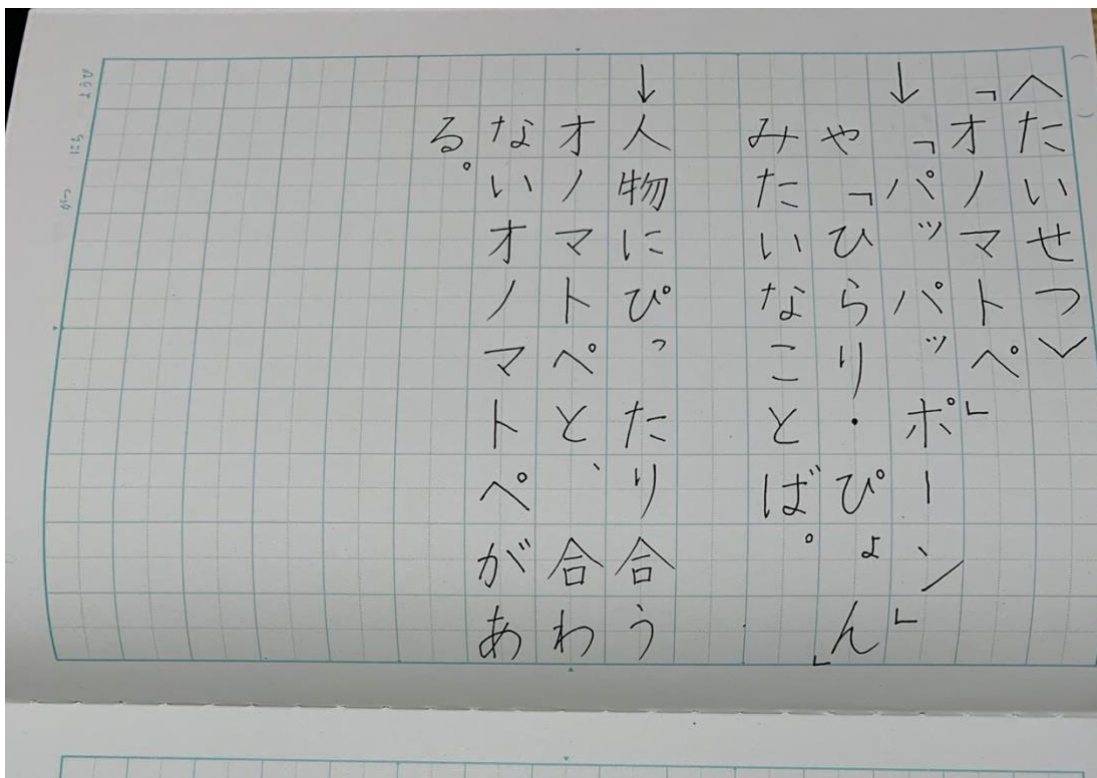 〈たいせつ〉
「オノマトペ」
↓「パッパッポーン」
や「ひらり・ぴょん」
みたいなことば。
↓人物にぴったり合う
オノマトペと、合わ
ないオノマトペがあ
る。